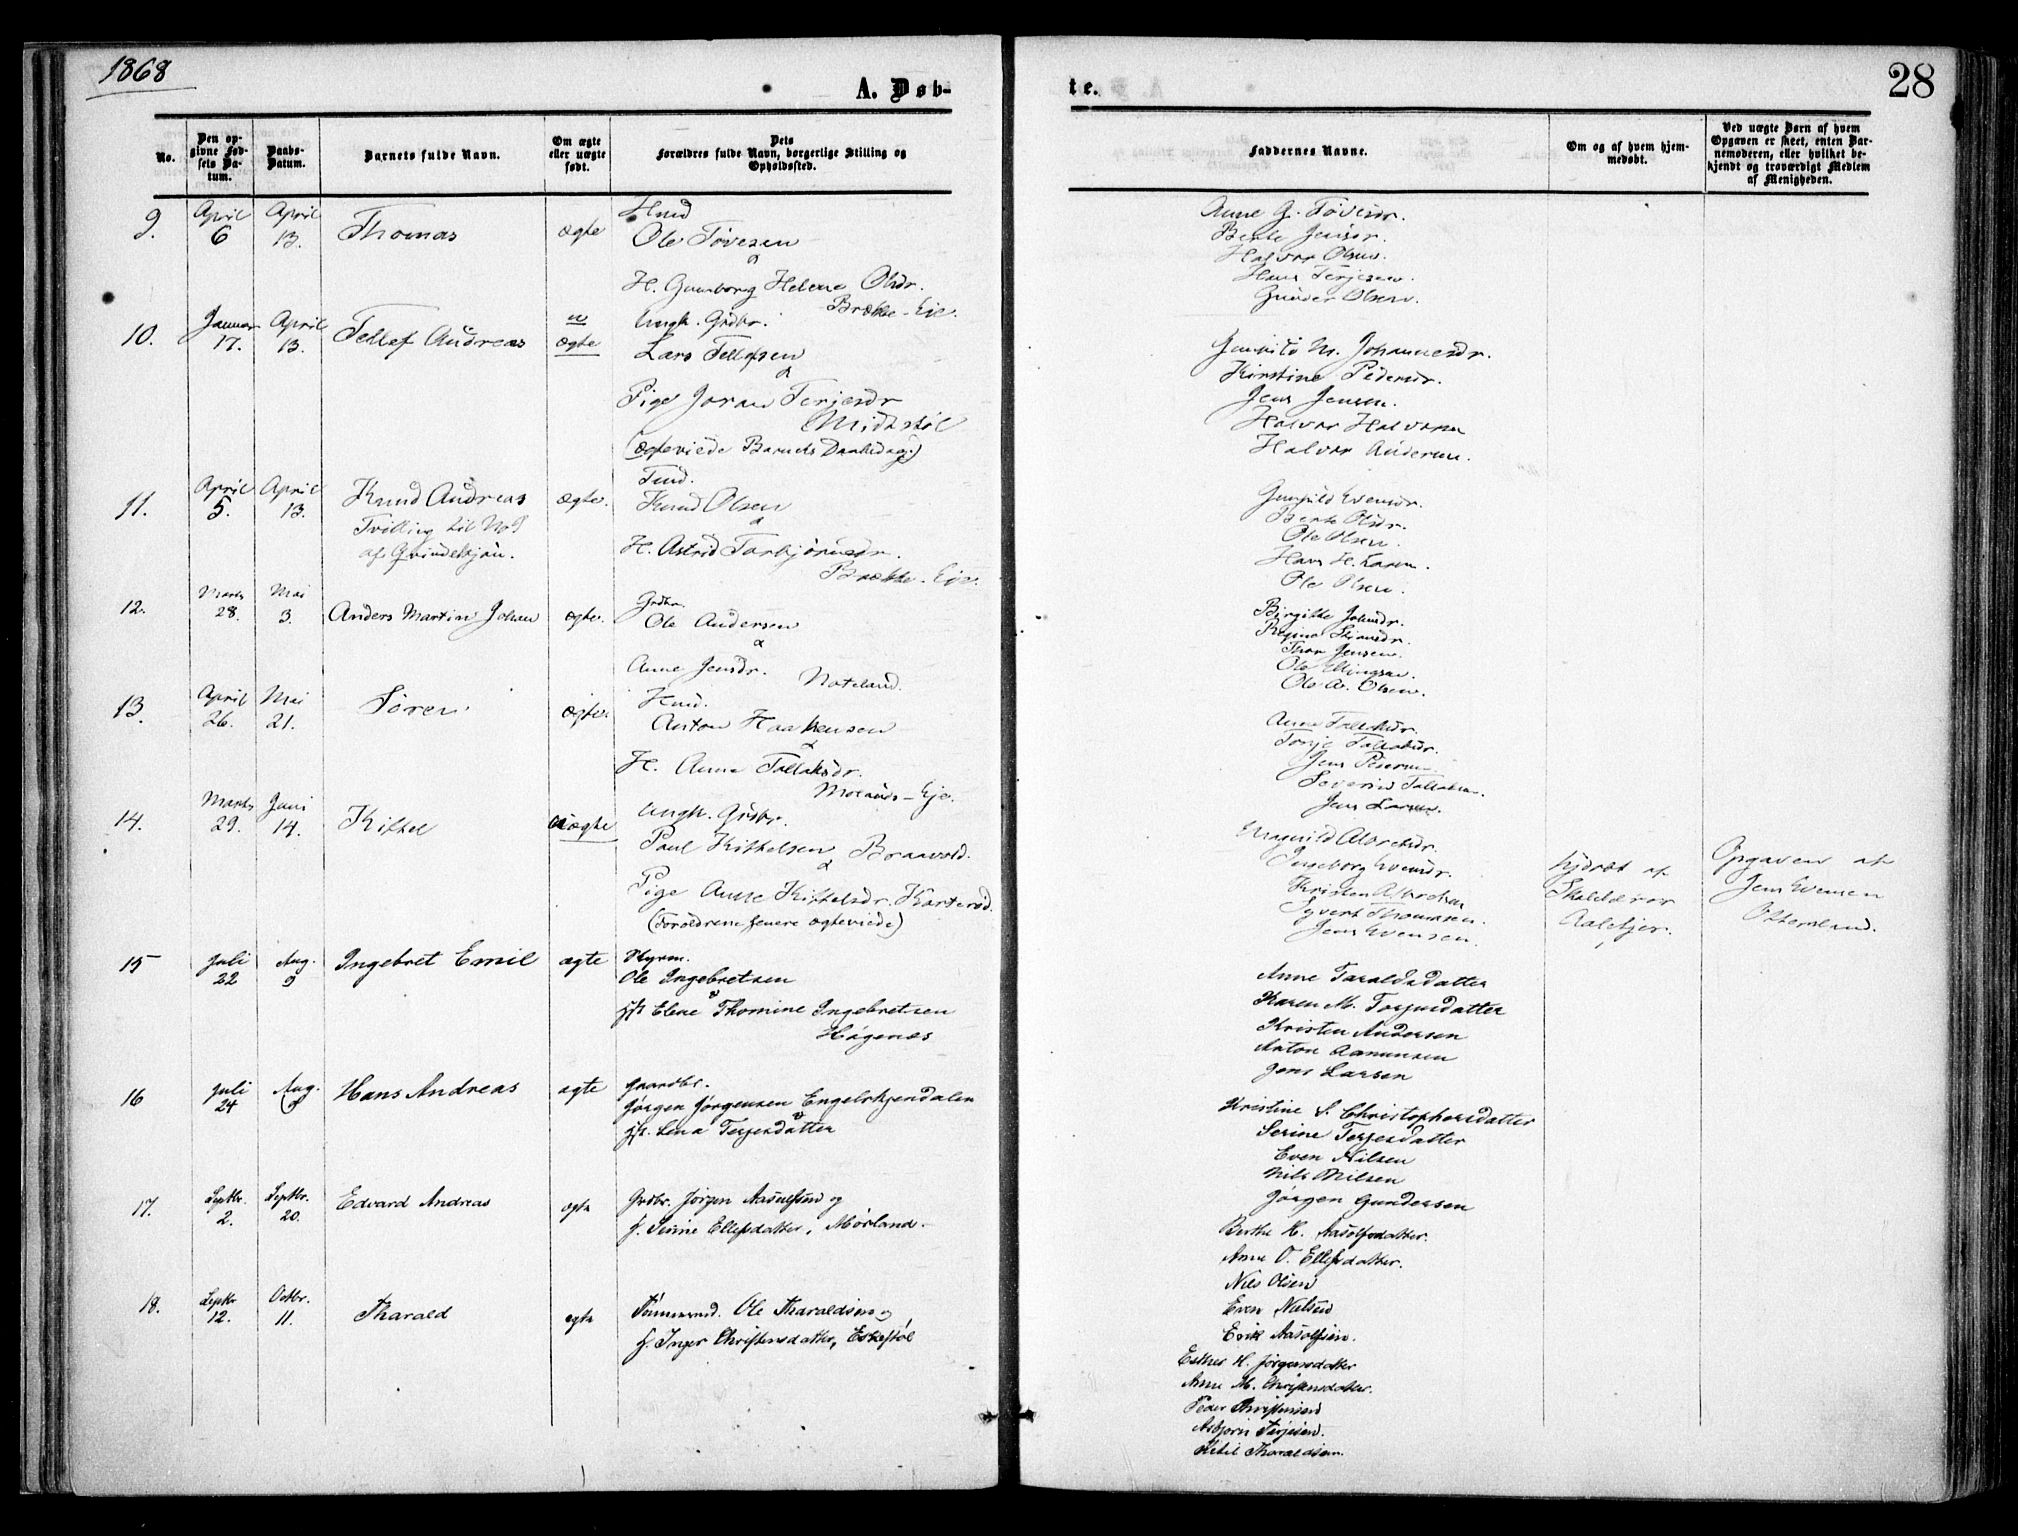 1868
A. Døb-
te.
28
No.
Den op-
givne Fød-
sels Da-
tum.
Daabs-
Datum.
Barnets fulde Navn.
Om ægte
eller uægte
født.
Dets
Forældres fulde Navn, borgerlige Stilling og
Opholdssted.
Faddernes Navne.
Om og af hvem hjem-
medøbt.
Ved uægte Børn af hvem
Opgaven er skeet, enten Bar-
nemoderen, eller hvilket be-
kjendt og troværdigt Medlem
af Menigheden.
9. April 6 April 13. Thomas ægte Hmd
Ole Tøvesen
&
H. Gunborg Helene Olsdr.
Brække-Eje.
Anne G. Tøvesdr.
Berte Jensdr.
Halvor Olsen.
Hans Terjesen.
Gunder Olsen.
10. Januar 17. April 13. Tellef Andreas u ægte Ungk. Grdbr.
Lars Tellefsen
&
Pige Joran Terjesdr
Midtstøl
(ægteviede Barnets Daabsdag.)
Gunhild M. Johannesdr.
Kirstine Pedersdr.
Jens Jensen.
Halvor Halvorsen
Halvor Andersen.
11. April 5. April 13. Knud Andreas ægte.
Tvilling til No 9
af Qvindekjøn.
Knud Olsen
&
H. Astrid Torbjørnsdr.
Brække-Eje.
Gunhild Evensdr.
Berte Olsdr.
Ole Olsen.
Hans H. Larsen.
Ole Olsen.
12. Marts 28. Mai 3. Anders Martin Johan ægte. Grdbr.
Ole Andersen
&
Anne Jensdr.
Noteland.
Birgitte Johnsdr.
Thor Jensen.
Ole Ellingsen.
Ole A. Olsen.
13. April 26. Mai 21. Søren ægte. Hmd.
Anton Haakensen
&
H. Anne Tallaksdr.
Molands-Eje.
Anne Tallaksdr.
Tonje Tallaksdr.
Jens Pedersen
Severin Tallaksen.
Jens Larsen.
14. Marts 29. Juni 14. Kittel uægte Ungk. Grdbr.
Poul Kittelsen Braavold.
&
Pige Anne Kittelsdr. Karterød.
(Forældrene senere ægteviede)
Magnild Alvretsdr.
Ingeborg Evensdr.
Kristen Alvretsen
Syvert Thomasen.
Jens Evensen.
hjdøbt af
Skolelærer
Aalekjer.
Opgaven af
Jens Evensen
Otterland.
15 Juli 22 Aug. 9 Ingebret Emil ægte Styrm.
Ole Ingebretsen
&
H. Elene Thomine Ingebretsen
Høgenes
Anne Taraldsdatter
Karen M. Torjusdatter
Kristen Andersen
Anton Aamunsen
Jens Larsen
16 Juli 24 Aug. 9 Hans Andreas ægte Gaardbr.
Jørgen Jørgensen Engelskjendalen
&
H. Lena Terjesdatter
Kristine S. Christophersdatter
Serine Terjesdatter
Even Nilsen
Nils Nilsen
Jørgen Gundersen
17. Septbr. 2. Septbr. 20. Edvard Andreas ægte Grdbr. Jørgen Aasulfsen og
H. Serine Ellefsdatter, Mørland.
Berthe H. Aasolfsdatter.
Anne O. Ellefsdatter.
Nils Olsen
Even Nielsen
Erik Aasolfsen.
18. Septbr 12. Octbr. 11. Tharald ægte Tømmermd. Ole Tharaldsen og
H. Inger Christensdatter, Eskestøl
Esther H. Jørgensdatter
Anne M. Christensdatter.
Peder Christensen
Asbjørn Terjesen.
Ketil Tharaldsen.